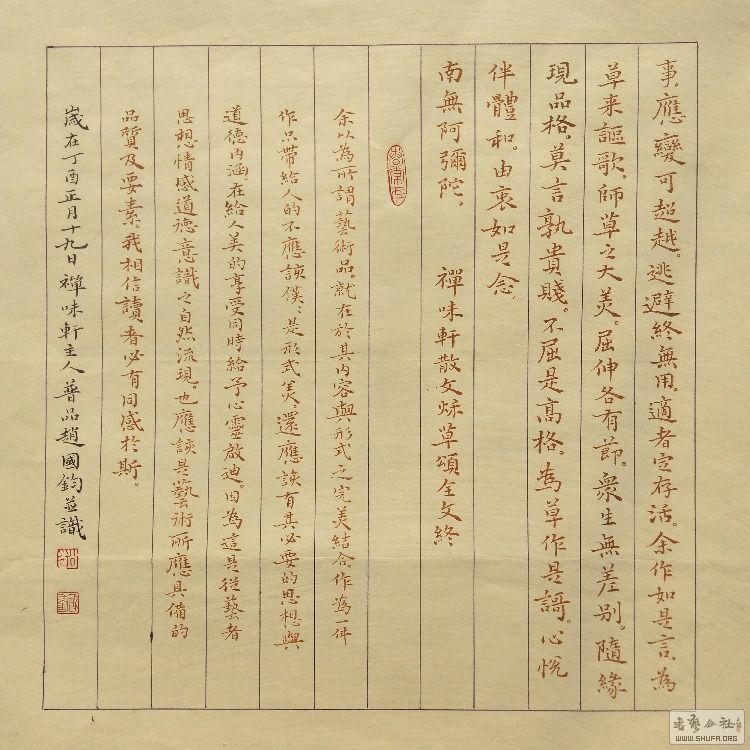 事。應變可超越。逃避終無用。適者定存活。余作如是言。為
草来謳歌。師草之大美。屈伸各有節。衆生無差别。隨緣
現品格。莫言孰貴賤。不屈是高格。為草作是謌。心悦
伴體和。由衷如是念。
南無阿彌陀。 禪味軒散文炢草頌全文終
余以為所謂藝術品。就在於其内容與形式之完美結合。作為一件
作品帶給人的不應該僕〻是形式美 還應該有其必要的思想與
道德内涵在給人美的享受同時給予心靈啟迪。因為這是從藝者
思想情感道德意識之自然流現。也應該是藝術所應具備的
品質及要素。我相信讀者必有同感於斯。
歲在丁酉正月十九日禪味軒主人普品趙國鈞並識
書藝公社
WWW.SHUFA.ORG